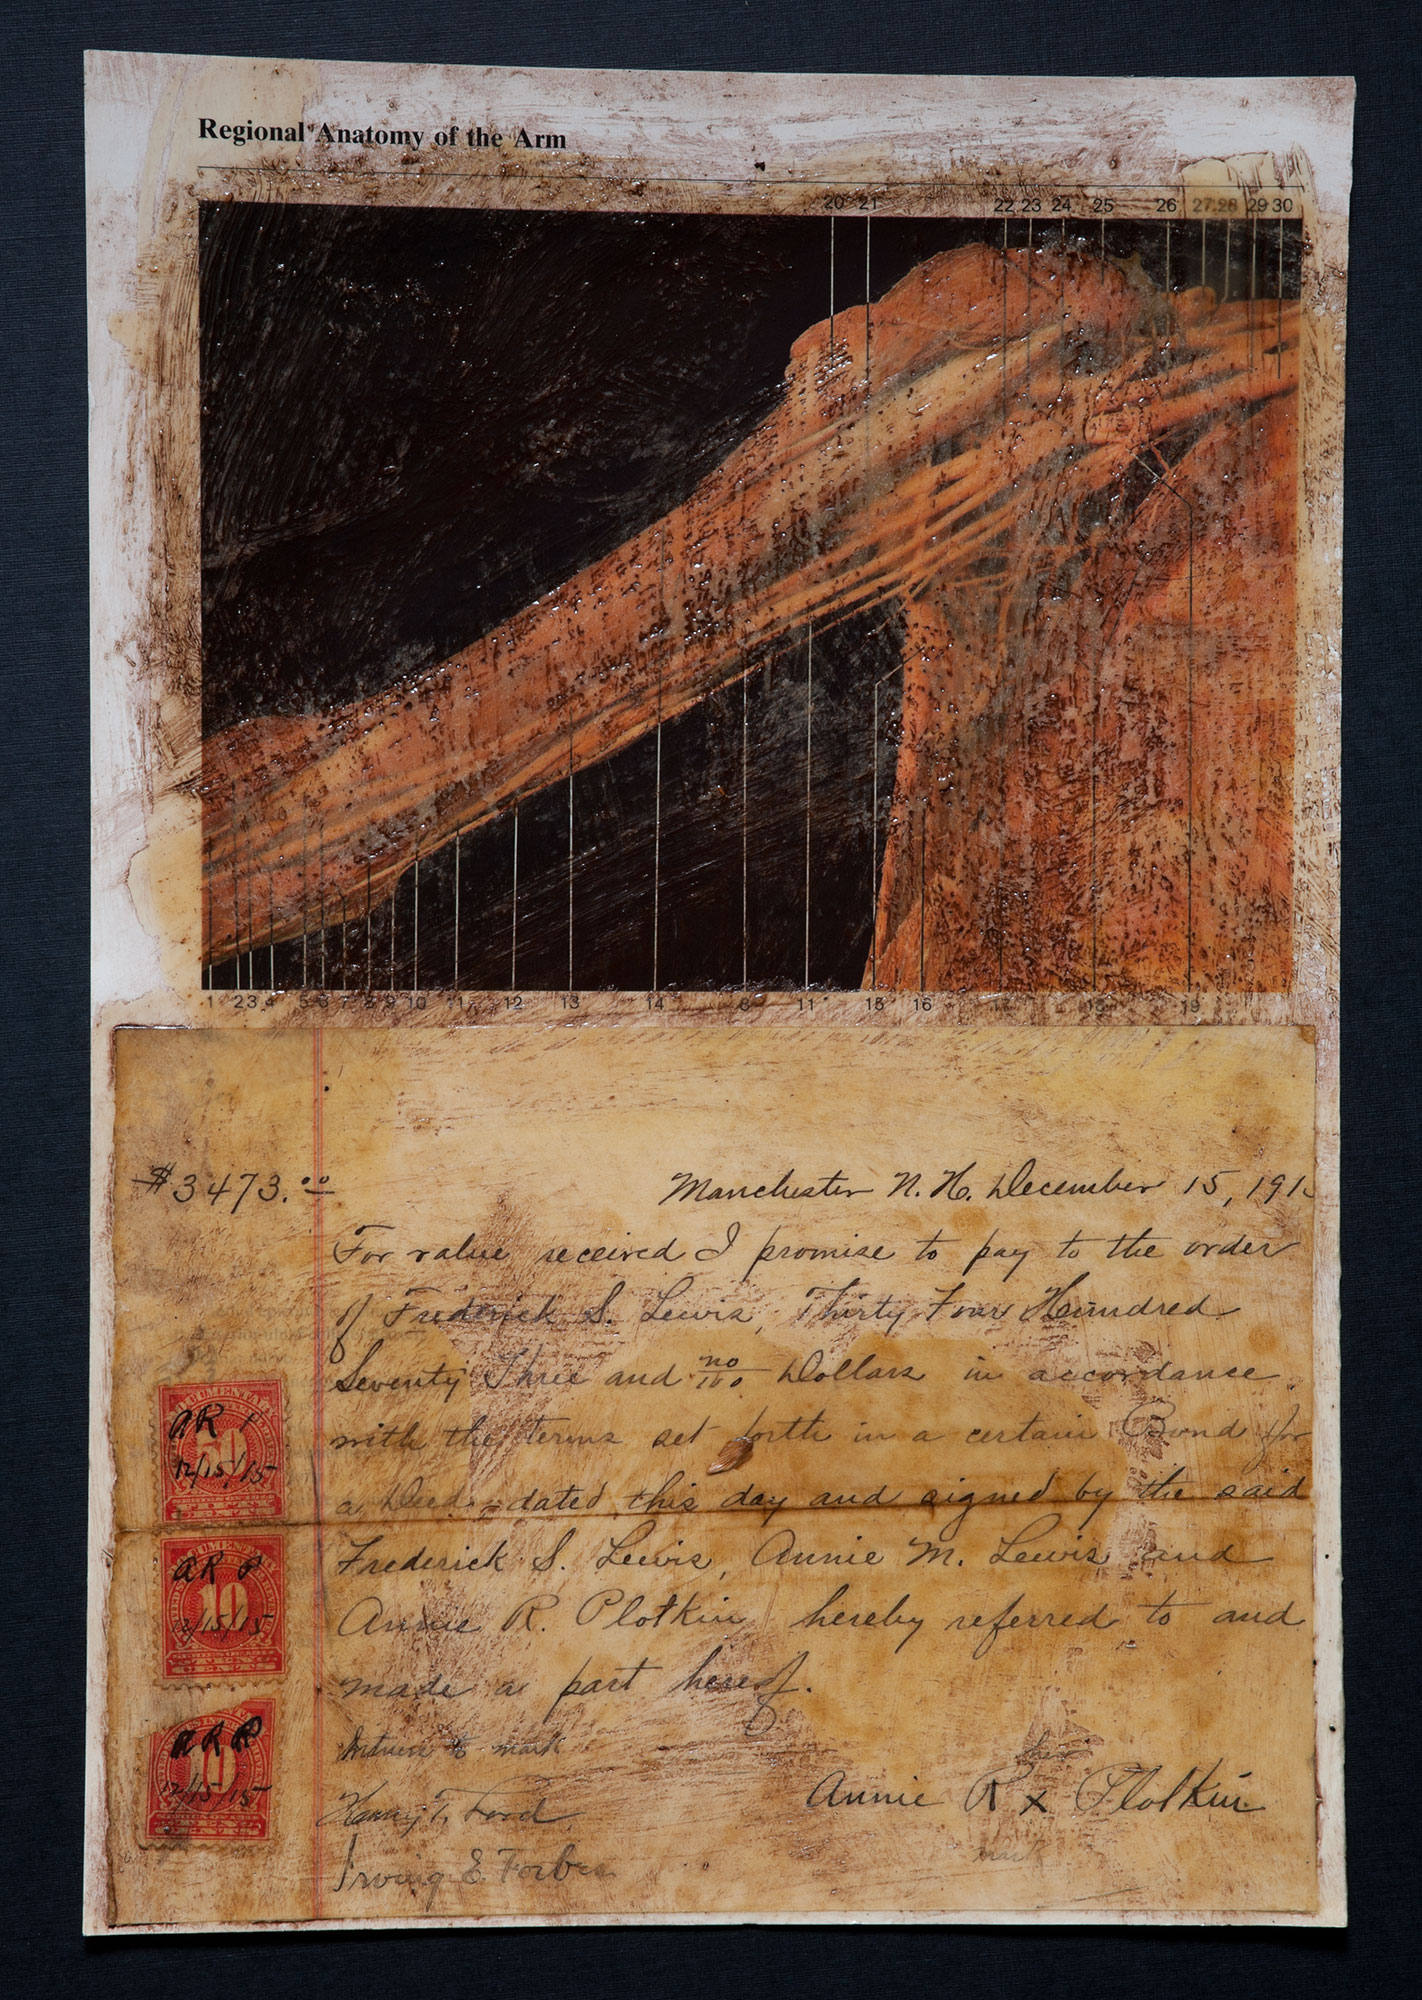 Regional Anatomy of the Arm
20 21 22 23 24 25 26 27 28 29 30
1 2 3 4 5 6 7 8 9 10 11 12 13 14 8 11 15 16 18 19
$3473.00 Manchester N. H. December 15, 191
For value received I promise to pay to the order
of Frederick S. Lewis, Thirty Four Hundred
Seventy Three and no/100 Dollars in accordance
with the terms set forth in a certain Bond for
a Deed, dated this day and signed by the said
Frederick S. Lewis, Annie M. Lewis and
Annie R. Plotkin hereby referred to and
made a part hereof.
Witness to mark
her
Annie R x Plotkin
mark
Harry T. Ford
Irving E. Forbes
DOCUMENTARY
AR
50
12/15/15
CENTS
DOCUMENTARY
AR P
10
12/15/15
CENTS
ARP
10
12/15/15